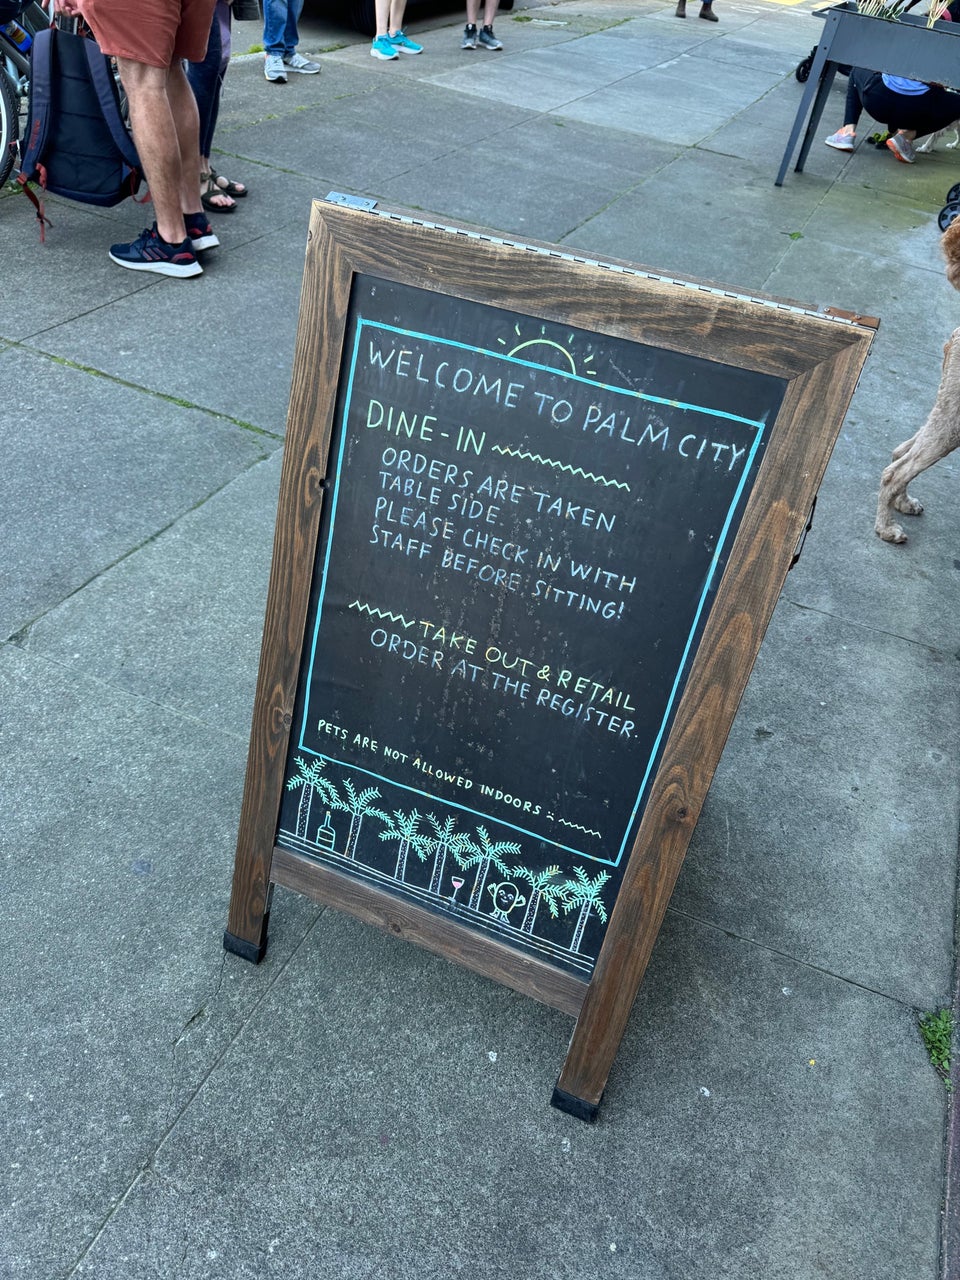 WELCOME TO PALM CITY
DINE-IN
ORDERS ARE TAKEN
TABLE SIDE.
PLEASE CHECK IN WITH
STAFF BEFORE SITTING!
TAKE OUT & RETAIL
ORDER AT THE REGISTER.
PETS ARE NOT ALLOWED INDOORS